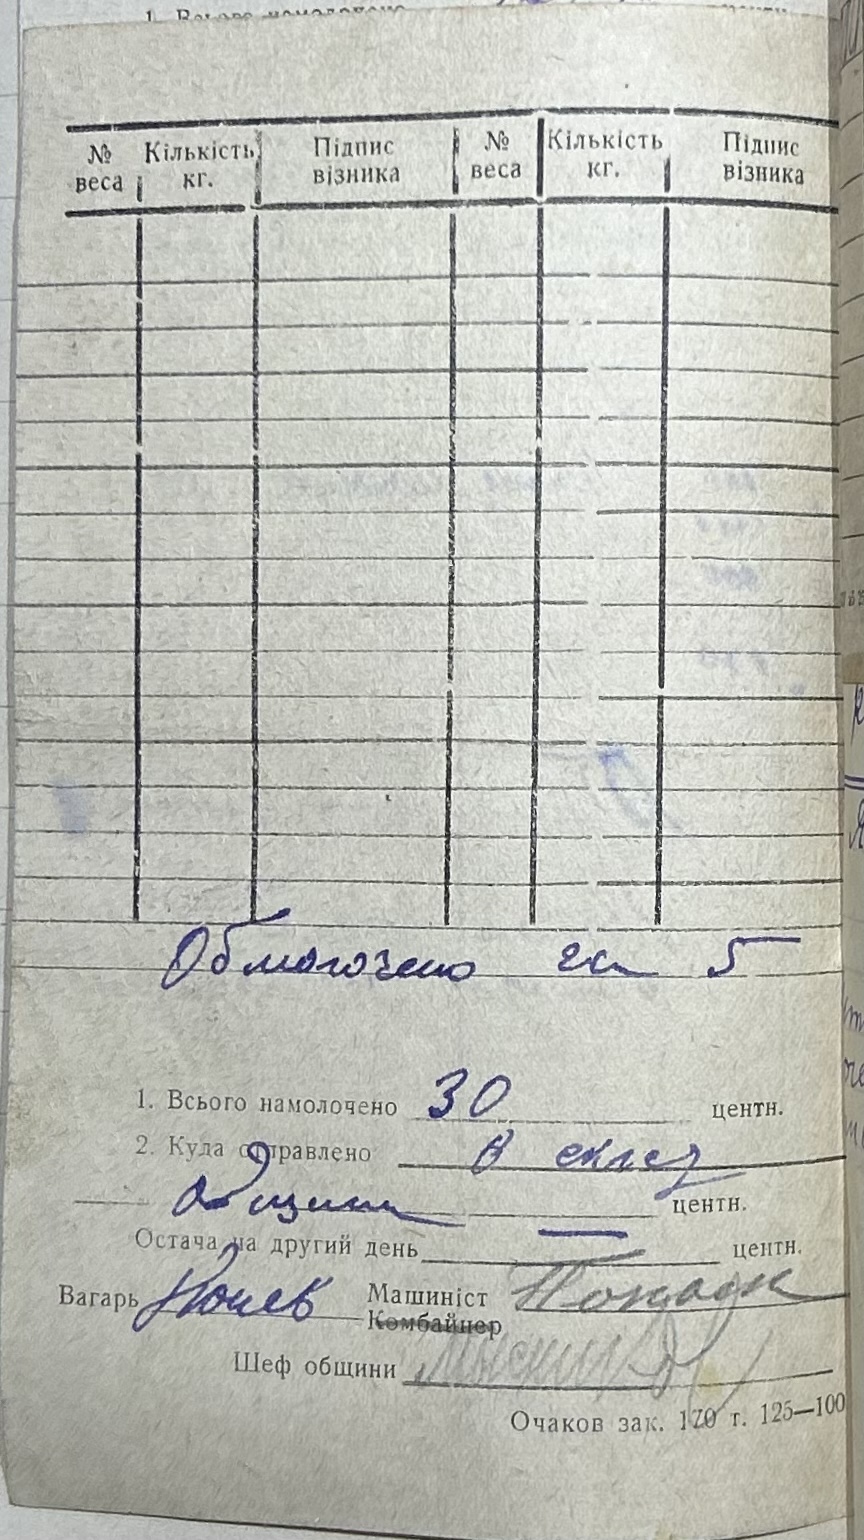 1. Всього намолочено
№ веса Кількість кг. Підпис візника № веса Кількість кг. Підпис візника
Обмолочено га 5
1. Всього намолочено 30 центн.
2. Куда отправлено В склад
Общини центн.
Остача на другий день — центн.
Вагарь Машиніст
Комбайнер
Шеф общини
Очаков зак. 170 г. 125—100